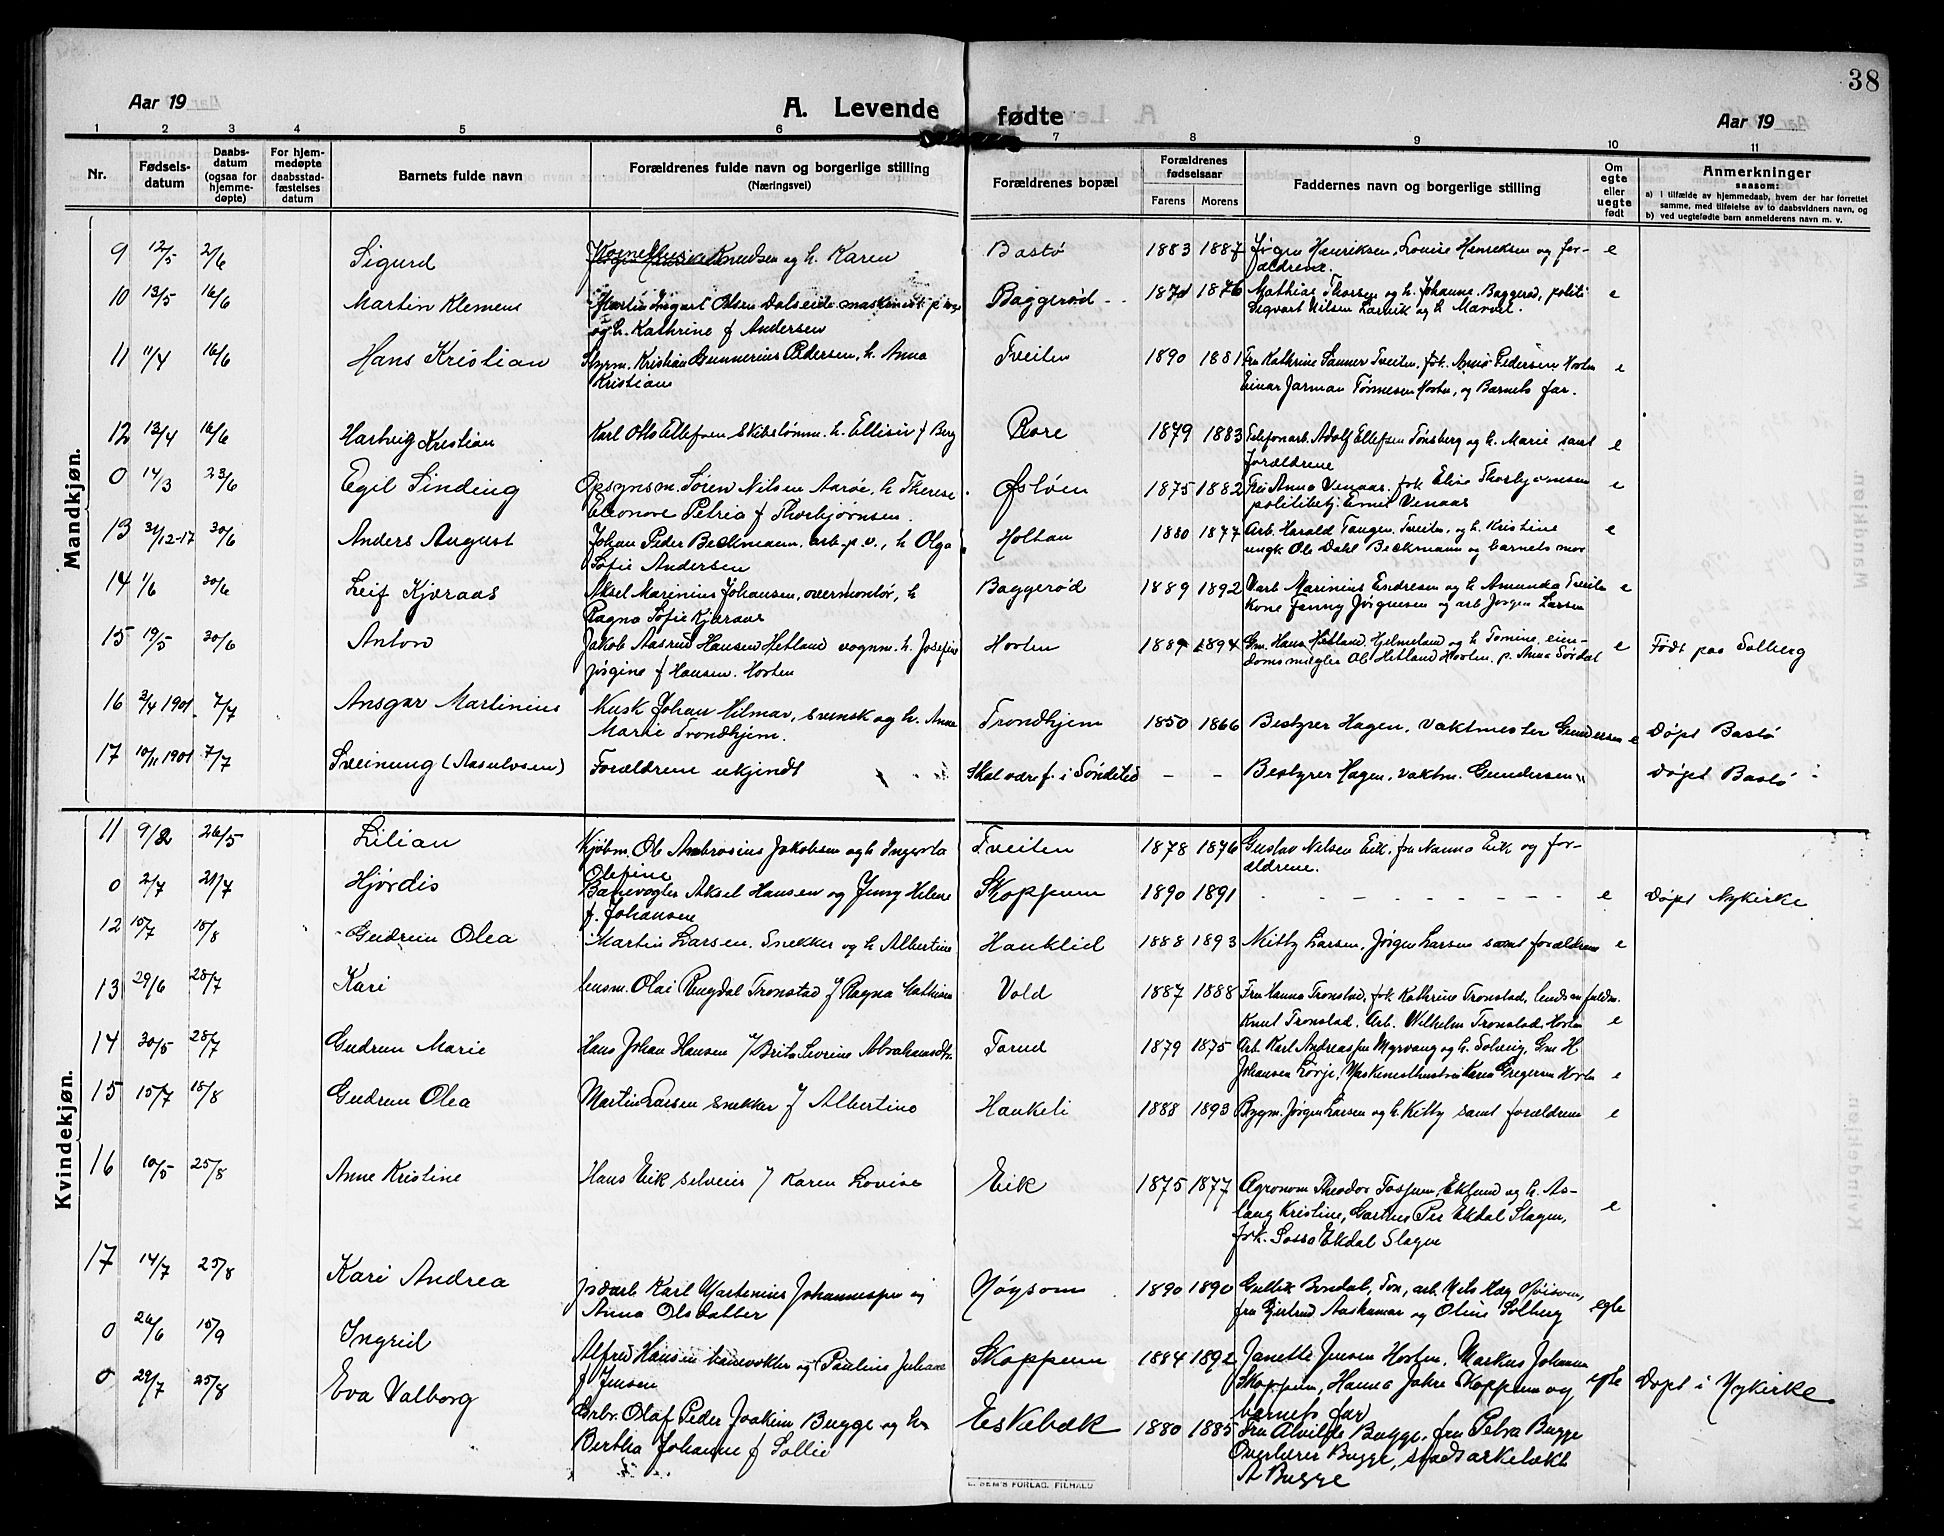 38
Aar 19
A. Levende fødte
Aar 19
1 2 3 4 5 6 7 8 9 10 11
Nr. Fødsels-datum Daabs-datum (ogsaa for hjemme-døpte) For hjem-medøpte daabsstad-fæstelses datum Barnets fulde navn Forældrenes fulde navn og borgerlige stilling (Næringsvei) Forældrenes bopæl Forældrenes fødselsaar Farens Morens Faddernes navn og borgerlige stilling Om egte eller uegte født Anmerkninger saasom:
a) i tilfælde av hjemmedaab, hvem der har forrettet samme, med tilføielse av to daabsvidners navn, og
b) ved uegtefødte barn anmelderens navn m. v.
Mandkjøn.
9 12/5 2/6 Sigurd Knudsen og h. Karen Bastø 1883 1887 Jørgen Henriksen, Louise Henriksen og for- e
ældrene.
10 13/5 16/6 Martin Klemens Martin Ingvart Olsen Dalseide maskinist Baggerød 1876 Mathias Thorsen og h. Johanne, Baggerød, politi e
og h. Kathrine f Andersen Sigvart Nilsen Larvik og h
11 11/4 16/6 Hans Kristian Styrm. Kristian Gunnerius Pedersen, h. Anna Tveiten 1890 1881 Fru Kathrine Sanner Tveiten, frk. Anna Pedersen Horten e
Kristians Einar Jarman Tønnesen Horten, og Barnets far.
12 13/4 16/6 Hartvig Kristian Karl Otto Ellefsen, Skibstømm. h. Ellisiv f Berg Rore 1879 1883 Telefonarb. Adolf Ellefsen Tønsberg og h. Marie samt e
forældrene
0 14/3 23/6 Egil Sinding Opsynsm. Søren Nilsen Aarøe, h Therese Østøen 1875 1882 Fru Anna Venaas, frk Elise Thorbjørnsen e
Eleonore Petria f Thorbjørnsen. politibtj. Emil Venaas
13 31/12-17 30/6 Anders August Johan Peder Beckmann, arb. p.v., h Olga Holtan 1880 1877 Arb. Harald Taugen, Tveiten, og h. Kristine e
Sofie Andersen ungk Ole Dahl Beckmann og barnets mor
14 1/6 30/6 Leif Kjæraas Aksel Marinius Johansen, overmontør, h Baggerød 1889 1892 Marinius Endresen og h Amunda Tveiten e
Ragna Sofie Kjæraas kone Fanny Jørgensen og arb Jørgen Larsen
15 19/5 30/6 Anton Jakob Aasrud Hansen Hetland vognm. h. Josefine Horten 1889 1894 Gm. Hans Hetland, Hjelmeland og h Tomine, eien- e Født paa Solberg
Jørgine f Hansen. Horten domsmegler Ole Hetland Horten, p. Anna Sørdal
16 2/4 1901 7/7 Ansgar Martinius Musk Johan Hilmar, svensk og h. Anna Trondhjem 1850 1866 Bestyrer Hagen, Vaktmester Gundersen e Døpt Bastø
Marie Trondhjem.
17 10/11 1901 7/7 Sveinung (Aasulvsen) Forældrene ukjendt Skal være f. i Søndeled – – Bestyrer Hagen, vaktm. Gundersen " Døpt Bastø
Kvindekjøn.
11 9/2 26/5 Lilian Kjøbm. Ole Ambrosius Jakobsen og h Tveiten 1878 1876 Gustav Nilsen Eik, fru Nanna Eik og for-
Olefine ældrene.
0 2/7 21/7 Hjørdis Banevogter Aksel Hansen og Jenny Helene Skoppum 1890 1891 – – – – – – – – e Døpt Nykirke
f. Johansen
12 15/7 18/8 Gudrun Olea Martin Larsen, Snekker og h Albertine Hauklid 1888 1893 Kitty Larsen, Jørgen Larsen samt forældrene e
13 29/6 28/7 Kari lensm. Olai Rugdal Tronstad f Ragna Mathisen Vold 1887 1888 Fru Hanna Tronstad, frk Kathrine Tronstad, lendsm fuldm.
Knut Tronstad. Arb. Wilhelm Tronstad. Horten e
14 30/5 28/7 Gudrun Marie Hans Johan Hansen Brita Severine Abrahamsdtr. Tarud 1879 1875 Arb. Karl Andreassen Myrvang og h. Solveig, Gm H
Johansen Lørje, Karen Gregersen Horten e
15 15/7 18/8 Gudrun Olea Martin Larsen snekker f Albertine Haukeli 1888 1893 Bygm. Jørgen Larsen og h. Kitty samt forældrene e
16 10/5 25/8 Anne Kristine Hans Eik selveier Karen Lovise Eik 1875 1877 Agronom Theodor Fossum, Eklund og h. As-
laug Kristine, Gartner Per Ekdal Slagen, e
frk. Ekdal Slagen
17 14/7 25/8 Kari Andrea jordarb Karl Martenius Johannessen og Nøysom 1890 1890 Gullik Bondal, Ton, arb. Nils Hag Nøisom, egte
Anna Olsdatter fru Gjertrud Aaskamar og Oline Solberg
0 26/6 15/9 Ingrid Alfred Hansen banevokter og Pauline Juliane Skoppum 1884 1892 Janette Jensen Horten, Markus Johansen egte Døpt i Nykirke
f Jensen Skoppum, Hanna Jahre Skoppum og
barnets far
0 29/7 25/8 Eva Valborg Grbr. Olaf Peder Joakim Bugge og h. Eskebæk 1880 1885 Fru Alvilde Bugge, fru Petra Bugge
Bertha Johanne f Sollie Overlærer Bugge, stadsarkitekt
A Bugge
E. SEM'S FORLAG. FR.HALD